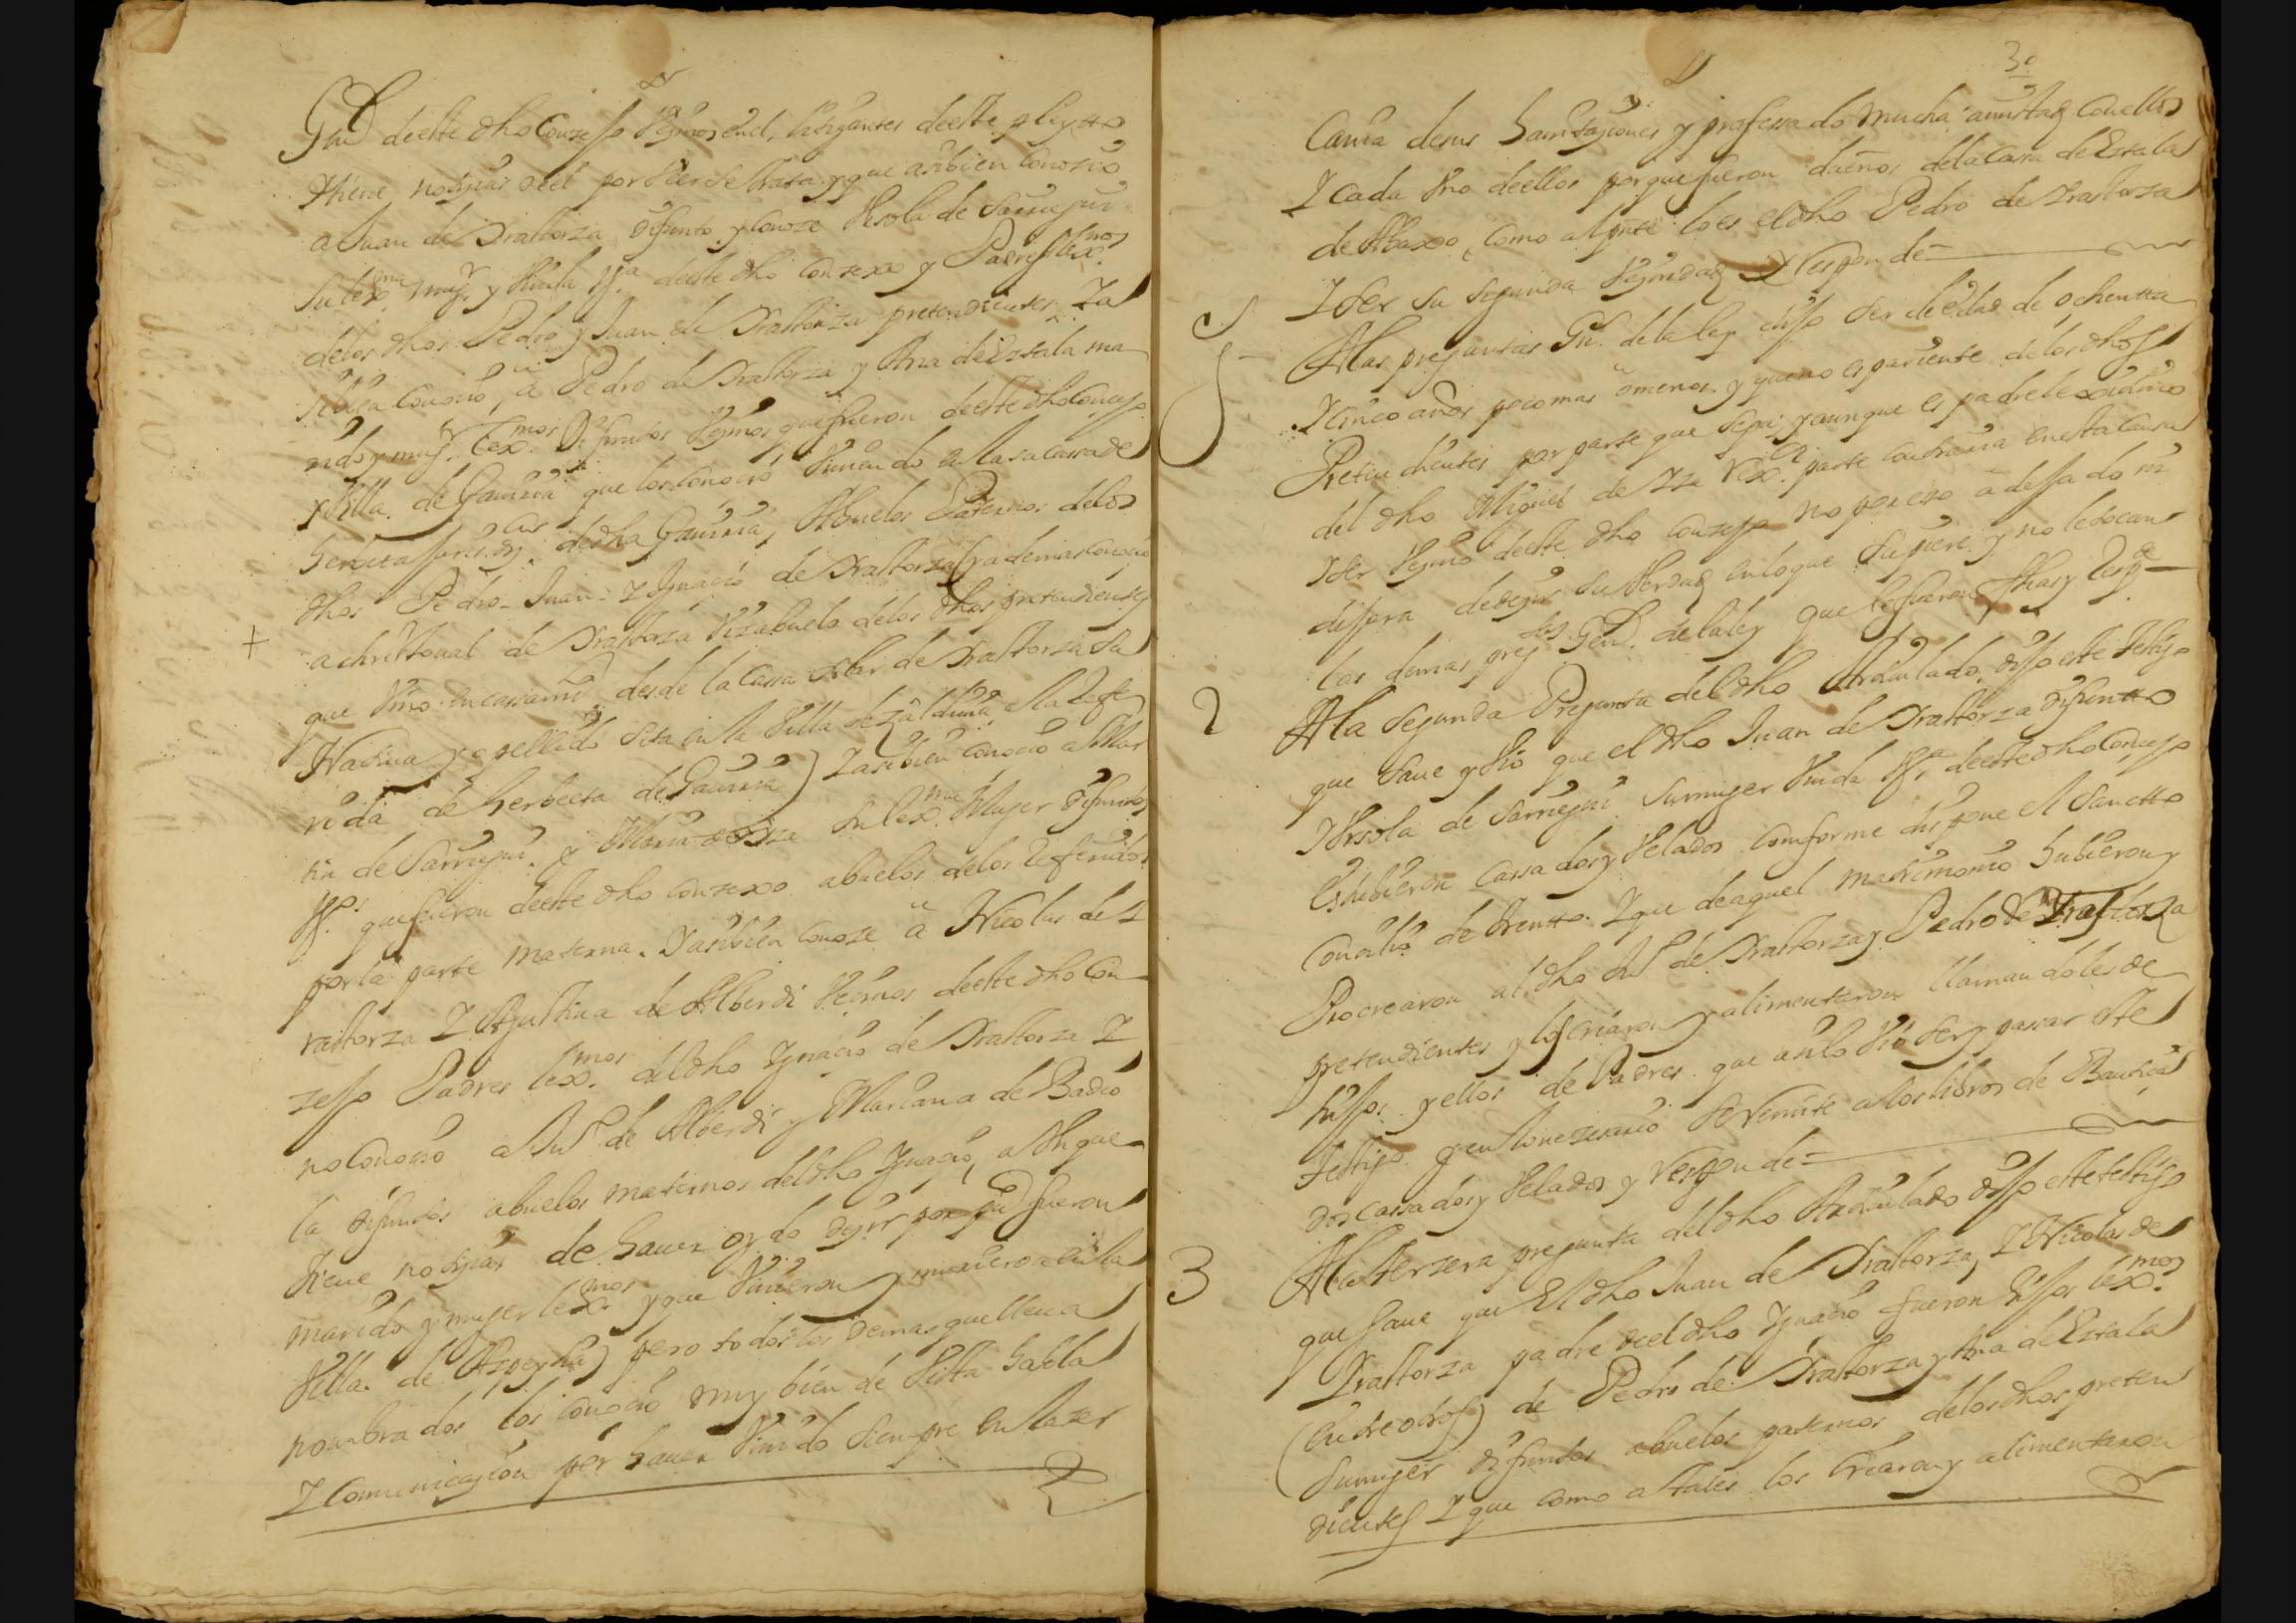 Gnl deeste dho Conzesso Vezinos enel, litigantes deeste pleytto
Thiene notizias deel por Verse trata y que asibien Conozio
a Juan de Yraltorza difunto y Conoze Vrsola de Sarregui
Su lexma muger y Viuda Vza deeste dho Conzexo y Padres lexmos
delos dhos Pedro y Juan de Yraltorza pretendientes Ya
sibien Conozio, a Pedro de Yraltorza y Ana de Eztala ma
rido y muger lexmos Difuntos Vezinos que fueron deeste dho Concejo
y Villa de Gauiria que los Conozio Viuiendo en la su cassa de
Herbeeta dedha Gauiria, Abuelos Paternos delos
dhos Pedro - Juan - Y Ygnacio de Yraltorza (y ademas Conozio
+ a christoual de Yraltorza Visabuelo delos dhos pretendientes
que Vino en cassamto desde la Cassa Solar de Yraltorza Su
Natiua y apellido Sita en la Villa de Zaldiuia ala Refe
rida de Herbeeta de Gauiria) Y asibien Conozio a Mar
tin de Sarregui y Maria de Yza Su lexma Muger difuntos
Vzos que fueron deeste dho Conzexo abuelos delos referidos
por la parte materna. Y asibien Conoze a Nicolas de Y
raltorza Y Agustina de Alberdi Vezinos deeste dho Con
zesso Padres lexmos del dho Ygnacio de Yraltorza Y
no Conozio a Juo de Alberdi y Mariana de Badio
la difuntos abuelos maternos del dho Ygnacio, a Vnque
tiene notizias de hauer oydo dezir por que fueron
marido y muger lexmos y que Viuieron y murieron en la
Villa de Azpeytia) pero todos los demas que lleua
nombrados los Conozio muy bien de Vista habla
Y Comunicazion por hauer Viuido Siempre en la zer
30
Cania desus hauitaziones y professado mucha amistad Con ellos
Y cada Vno deellos porque fueron dueños dela Cassa de Eztala
de Abaxo, Como al pnte lo es el dho Pedro de Yraltorza
Y Ser Su Segunda Vezindad Y Responde=
A las preguntas Gns. dela ley dijo Ser de edad de ochentta
Y Cinco años poco mas o menos, y que no es pariente delos dhos
Pretendientes por parte que Sepa, y aunque es padre lexitimo
del dho Miguel de Yza Vexo. parte Contraria en esta Causa
Y Ser Vezino deeste dho Conzesso no por eso a dessado ni
dessara de dezir Su Verdad en lo que Supiere y no le tocan
las demas pregtas Genls. dela ley que le fueron fhas y Respde
2 A la Segunda Pregunta del dho Articulado, dijo este testigo
que Saue y Vio que el dho Juan de Yraltorza difuntto
Y Vrsola de Sarregui Sumuger Viuda Vza deeste dho Concejo
Estubieron Cassados y Velados Comforme dispone el Sanctto
Concilio de trentto. Y que de aquel matrimonio hubieron y
Procrearon al dho Juo de Yraltorza y Pedro de Yraltorza
pretendientes y los Criaron y alimentaron llamandoles de
hissos y ellos de Padres que asi lo Vio Ser y passar este
testigo y en lo nezesario Se Remite alos libros de Bautiza
dos Cassados y Velados y Responde=
3 A la terzera pregunta del dho Articulado dijo este testigo
que Saue que El dho Juan de Yraltorza, Y Nicolas de
Yraltorza padre deel dho Ygnacio fueron hissos lexmos
(entre otros) de Pedro de Yraltorza y Ana de Eztala
Sumuger difuntos abuelos paternos delos dhos preten
dientes Y que Como a tales los Criaron y alimentaron